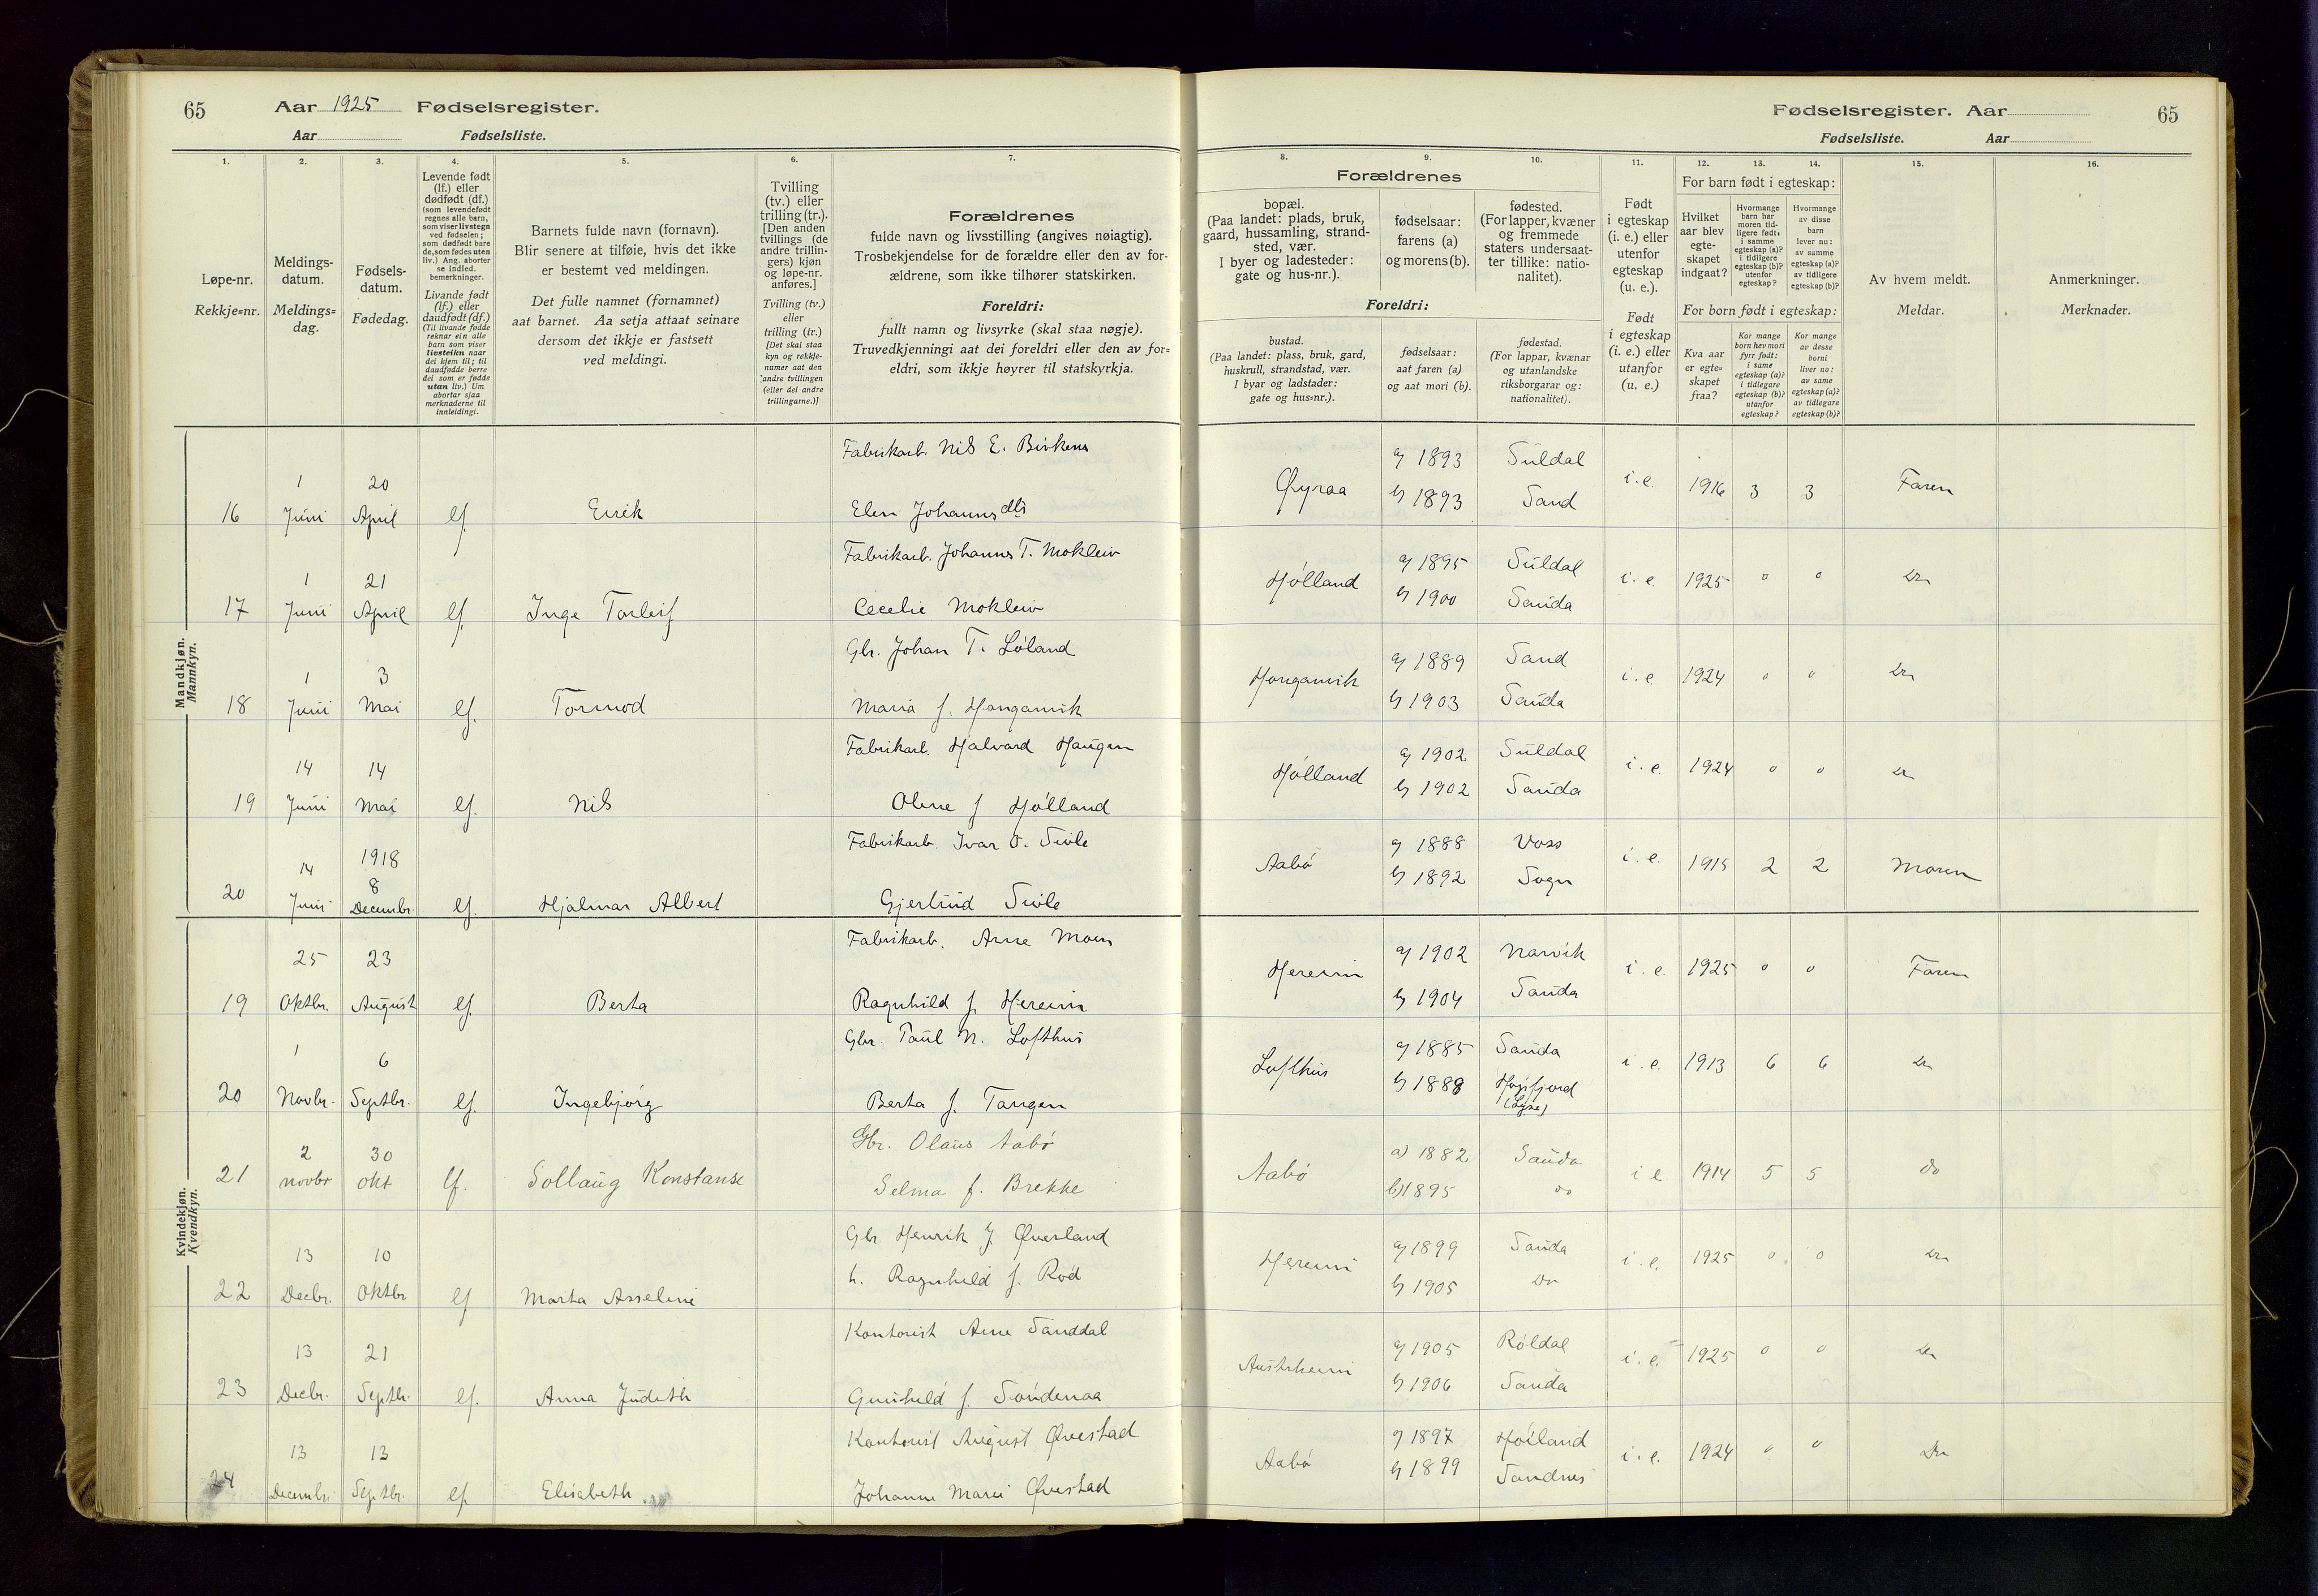 65 Aar 1925 Fødselsregister.
Aar Fødselsliste.
Fødselsregister. Aar 65
Fødselsliste. Aar
1. 2. 3. 4. 5. 6. 7. 8. 9. 10. 11. 12. 13. 14. 15. 16.
Løpe-nr.
Rekkje=nr.
Meldings-
datum.
Meldings=
dag.
Fødsels-
datum.
Fødedag.
Levende født
(lf.) eller
dødfødt (df.)
(som levendefødt
regnes alle barn,
som viser livstegn
ved fødselen;
som dødfødt bare
de, som fødes uten
liv.) Ang. aborter
se indled.
bemerkninger.
Livande født
(lf.) eller
daudfødt (df.)
(Til livande fødde
reknar ein alle
barn som viser
livsteikn naar
dei kjem til; til
daudfødde berre
dei som er fødde
utan liv.) Um
abortar sjaa
merknaderne til
innleidingi.
Barnets fulde navn (fornavn).
Blir senere at tilføie, hvis det ikke
er bestemt ved meldingen.
Det fulle namnet (fornamnet)
aat barnet. Aa setja attaat seinare
dersom det ikkje er fastsett
ved meldingi.
Tvilling
(tv.) eller
trilling (tr.).
[Den anden
tvillings (de
andre trillin-
gers) kjøn
og løpe-nr.
anføres.]
Tvilling (tv.)
eller
trilling (tr.)
[Det skal staa
kyn og rekkje-
numer aat den
andre tvillingen
(eller dei andre
trillingarne.)]
Forældrenes
fulde navn og livsstilling (angives nøiagtig).
Trosbekjendelse for de forældre eller den av for-
ældrene, som ikke tilhører statskirken.
Foreldri:
fullt namn og livsyrke (skal staa nøgje).
Truvedkjenningi aat dei foreldri eller den av for=
eldri, som ikkje høyrer til statskyrkja.
Forældrenes
bopæl.
(Paa landet: plads, bruk,
gaard, hussamling, strand-
sted, vær.
I byer og ladesteder:
gate og hus-nr.).
fødselsaar:
farens (a)
og morens (b).
fødested.
(For lapper, kvæner
og fremmede
staters undersaat-
ter tillike: natio-
nalitet).
Foreldri:
bustad.
(Paa landet: plass, bruk, gard,
huskrull, strandstad, vær.
I byar og ladstader:
gate og hus=nr.).
fødselsaar:
aat faren (a)
og aat mori (b).
fødestad.
(For lappar, kvænar
og utanlandske
riksborgarar og:
nationalitet).
Født
i egteskap
(i. e.) eller
utenfor
egteskap
(u. e.).
Født
i egteskap
(i. e.) eller
utanfor
(u. e.)
For barn født i egteskap:
Hvilket
aar blev
egte-
skapet
indgaat?
Hvormange
barn har
moren tid-
ligere født:
i samme
egteskap (a)?
i tidligere
egteskap (b)?
utenfor
egteskap?
Hvormange
av disse
barn
lever nu:
av samme
egteskap (a)?
av tidligere
egteskap (b)?
For born født i egteskap:
Kva aar
er egte=
skapet
fraa?
Kor mange
born hev mori
fyrr født:
i same
egteskap (a)?
i tidlegare
egteskap (b)?
utanfor
egteskap?
Kor mange
av desse
borni
liver no:
av same
egteskap (a)?
av tidlegare
egteskap (b)?
Av hvem meldt.
Meldar.
Anmerkninger.
Merknader.
Mandkjøn.
Mannkyn.
16 1 Juni 20 April lf. Eirik Fabrikarb. Nils E. Birkens Øyraa a) 1893 Suldal i. e. 1916 3 3 Faren
Elen Johannsdtr b) 1893 Sand
17 1 Juni 21 April lf. Inge Torleif Fabrikarb. Johannes T. Mokleiv Hólland a) 1895 Suldal i. e. 1925 0 0 Do
Cecelie Mokleiv b) 1900 Sauda
18 1 Juni 3 Mai lf. Tormod Gbr. Johan T. Lóland Honganvik a) 1889 Sand i. e. 1924 0 0 Do
Maria f. Honganvik b) 1903 Sauda
19 14 Juni 14 Mai lf. Nils Fabrikarb. Halvard Haugen Hólland a) 1902 Suldal i. e. 1924 0 0 Do
Oline f Hólland b) 1902 Sauda
20 14 Juni 1918 8 Decembr. lf. Hjalmar Albert Fabrikarb. Ivar O. Sivle Aabó a) 1888 Voss i. e. 1915 2 2 Moren
Gjertrud Sivle b) 1892 Sogn
Kvindekjøn.
Kvendkyn.
19 25 Oktbr. 23 August lf. Berta Fabrikarb. Arne Moen Hereim a) 1902 Narvik i. e. 1925 0 0 Faren
Ragnhild f. Hereim b) 1904 Sauda
20 1 Novbr. 6 Septbr. lf. Ingebjórg Gbr. Paul N. Lofthus Lofthus a) 1885 Sauda i. e. 1913 6 6 Do
Berta f. Tangen b) 1888 Høgsfjord
(Lyse)
21 2 novbr 30 okt lf. Sollaug Konstanse Gbr. Olaus Aabó Aabó a) 1882 Sauda i e 1914 5 5 do
Selma f. Brekke b) 1895 do
22 13 Decbr. 10 Oktbr lf Marta Asseline Gbr Henrik J. Øverland Hereim a) 1899 Sauda i. e. 1925 0 0 Do
h. Ragnhild f. Ród b) 1905 Do
23 13 Decbr. 21 Septbr. lf. Anna Judith Kontorist Arne Sanddal Austarheim a) 1905 Róldal i. e. 1925 0 0 Do
Gunhild f. Sóndenaa b) 1906 Sauda
24 13 Decembr. 13 Septbr. lf. Elisabeth Kontorist August Qvestad Aabó a) 1897 Hóiland i. e. 1924 0 0 Do
Johanne Marie Qvestad b) 1899 Sandnes